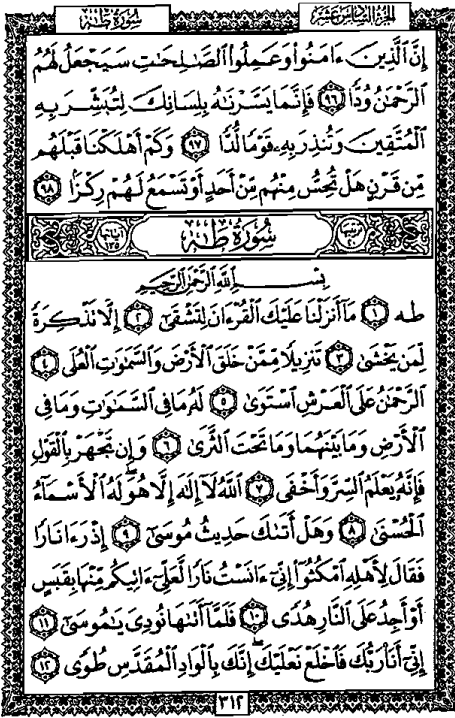 الجزء السادس عشر
سُورَةُ طه
إِنَّ ٱلَّذِينَ ءَامَنُوا۟ وَعَمِلُوا۟ ٱلصَّـٰلِحَـٰتِ سَيَجْعَلُ لَهُمُ
ٱلرَّحْمَـٰنُ وُدًّا ٩٦ فَإِنَّمَا يَسَّرْنَـٰهُ بِلِسَانِكَ لِتُبَشِّرَ بِهِ
ٱلْمُتَّقِينَ وَتُنذِرَ بِهِۦ قَوْمًا لُّدًّا ٩٧ وَكَمْ أَهْلَكْنَا قَبْلَهُم
مِّن قَرْنٍ هَلْ تُحِسُّ مِنْهُم مِّنْ أَحَدٍ أَوْ تَسْمَعُ لَهُمْ رِكْزًۢا ٩٨
سُورَةُ طه
آياتها ١٣٥
بِسْمِ ٱللَّهِ ٱلرَّحْمَـٰنِ ٱلرَّحِيمِ
طه ١ مَآ أَنزَلْنَا عَلَيْكَ ٱلْقُرْءَانَ لِتَشْقَىٰٓ ٢ إِلَّا تَذْكِرَةً
لِّمَن يَخْشَىٰ ٣ تَنزِيلًا مِّمَّنْ خَلَقَ ٱلْأَرْضَ وَٱلسَّمَـٰوَٰتِ ٱلْعُلَى ٤
ٱلرَّحْمَـٰنُ عَلَى ٱلْعَرْشِ ٱسْتَوَىٰ ٥ لَهُۥ مَا فِى ٱلسَّمَـٰوَٰتِ وَمَا فِى
ٱلْأَرْضِ وَمَا بَيْنَهُمَا وَمَا تَحْتَ ٱلثَّرَىٰ ٦ وَإِن تَجْهَرْ بِٱلْقَوْلِ
فَإِنَّهُۥ يَعْلَمُ ٱلسِّرَّ وَأَخْفَى ٧ ٱللَّهُ لَآ إِلَـٰهَ إِلَّا هُوَ ۖ لَهُ ٱلْأَسْمَآءُ
ٱلْحُسْنَىٰ ٨ وَهَلْ أَتَىٰكَ حَدِيثُ مُوسَىٰٓ ٩ إِذْ رَءَا نَارًا
فَقَالَ لِأَهْلِهِ ٱمْكُثُوٓا۟ إِنِّىٓ ءَانَسْتُ نَارًا لَّعَلِّىٓ ءَاتِيكُم مِّنْهَا بِقَبَسٍ
أَوْ أَجِدُ عَلَى ٱلنَّارِ هُدًى ١٠ فَلَمَّآ أَتَىٰهَا نُودِىَ يَـٰمُوسَىٰٓ ١١
إِنِّىٓ أَنَا۠ رَبُّكَ فَٱخْلَعْ نَعْلَيْكَ ۖ إِنَّكَ بِٱلْوَادِ ٱلْمُقَدَّسِ طُوًى ١٢
٣١٢